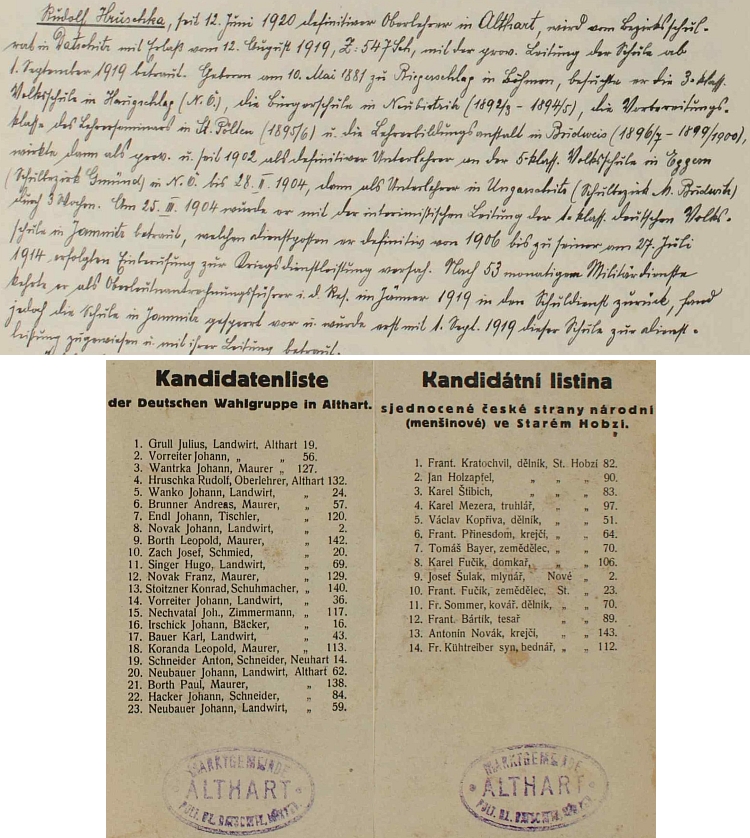 Rudolf Hruschka, seit 12. Juni 1920 definitiver Oberlehrer in Althart, wird vom Bezirksschul-
rat in Datschitz mit Erlaß vom 12. August 1919, Z: 547 Sch, mit der prov. Leitung der Schule ab
1. September 1919 betraut. Geboren am 10. Mai 1881 zu Ruperschlag in Böhmen, besuchte er die 3-klass.
Volksschule in Haugschlag (N.Ö.), die Bürgerschule in Neubistritz (1892/3 - 1894/5), die Vorbereitungs-
klasse des Lehrerseminars in St. Pölten (1895/6) u. die Lehrerbildungsanstalt in Budweis (1896/7 - 1899/1900),
wirkte dann als prov. u. seit 1902 als definitiver Unterlehrer an der 5-klass. Volksschule in Eggern
(Schulbezirk Gmünd) in N.Ö. bis 28. II. 1904, dann als Unterlehrer in Ungarschitz (Schulbezirk M. Budwitz)
durch 3 Wochen. Am 25. III. 1904 wurde er mit der interimistischen Leitung der 1-klass. deutschen Volks-
schule in Jamnitz betraut, welchen Dienstposten er definitiv von 1906 bis zu seiner am 27. Juli
1914 erfolgten Einberufung zur Kriegsdienstleistung versah. Nach 53 monatigem Militärdienste
kehrte er als Oberleutnantrechnungsführer i. d. Res. im Jänner 1919 in den Schuldienst zurück, fand
jedoch die Schule in Jamnitz gesperrt vor u. wurde erst mit 1. Sept. 1919 dieser Schule zur Dienst-
leistung zugewiesen u. mit ihrer Leitung betraut.
Kandidatenliste
der Deutschen Wahlgruppe in Althart.
1. Grull Julius, Landwirt, Althart 19.
2. Vorreiter Johann, „ „ 56.
3. Wantrka Johann, Maurer „ 127.
4. Hruschka Rudolf, Oberlehrer, Althart 132.
5. Wanko Johann, Landwirt, „ 24.
6. Brunner Andreas, Maurer, „ 57.
7. Endl Johann, Tischler, „ 120.
8. Novak Johann, Landwirt, „ 2.
9. Borth Leopold, Maurer, „ 142.
10. Zach Josef, Schmied, „ 20.
11. Singer Hugo, Landwirt, „ 69.
12. Novak Franz, Maurer, „ 129.
13. Stoitzner Konrad, Schuhmacher, „ 140.
14. Vorreiter Johann, Landwirt, „ 36.
15. Nechvatal Joh., Zimmermann, „ 117.
16. Irschick Johann, Bäcker, „ 16.
17. Bauer Karl, Landwirt, „ 43.
18. Koranda Leopold, Maurer, „ 113.
19. Schneider Anton, Schneider, Neuhart 14.
20. Neubauer Johann, Landwirt, Althart 62.
21. Borth Paul, Maurer, „ 138.
22. Hacker Johann, Schneider, „ 84.
23. Neubauer Johann, Landwirt, „ 59.
MARKTGEMEINDE
ALTHART
Kandidátní listina
sjednocené české strany národní
(menšinové) ve Starém Hobzí.
1. Frant. Kratochvil, dělník, St. Hobzí 82.
2. Jan Holzapfel, „ „ „ 90.
3. Karel Štibich, „ „ „ 83.
4. Karel Mezera, truhlář, „ „ 97.
5. Václav Kopřiva, dělník, „ „ 51.
6. Frant. Přinesdom, krejčí, „ „ 64.
7. Tomáš Bayer, zemědělec, „ „ 70.
8. Karel Fučík, domkař, „ „ 106.
9. Josef Šulak, mlynář, Nové „ 2.
10. Frant. Fučík, zemědělec, St. „ 23.
11. Fr. Sommer, kovář. dělník, „ „ 70.
12. Frant. Bártík, tesař „ „ 89.
13. Antonín Novák, krejčí, „ „ 143.
14. Fr. Kühtreiber syn, bednář, „ „ 112.
MARKTGEMEINDE
ALTHART